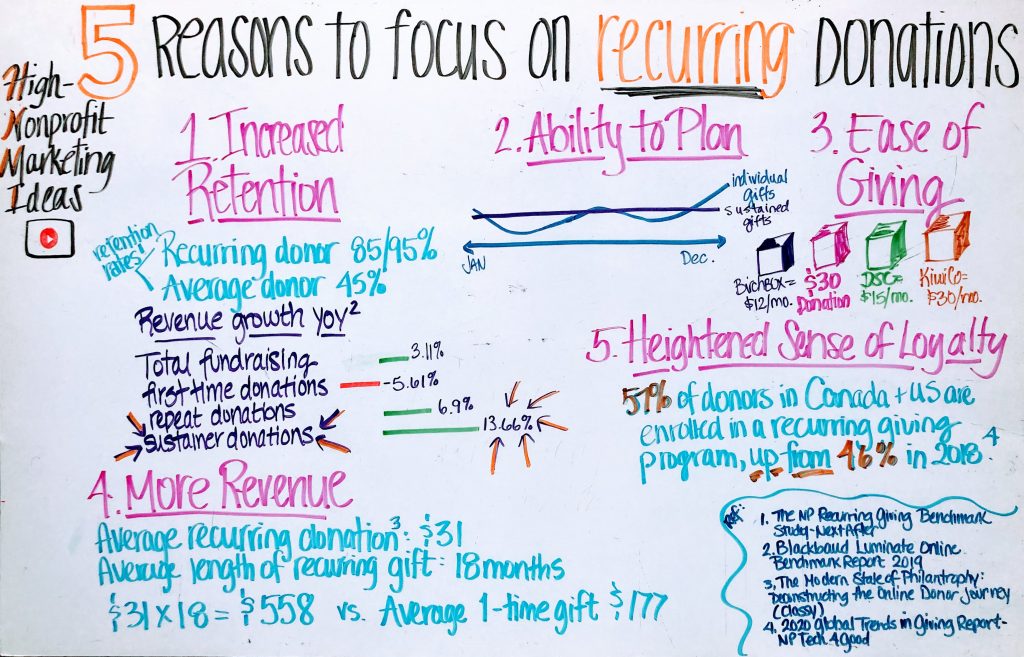 5 Reasons to focus on recurring Donations
High-
Nonprofit
Marketing
Ideas
1. Increased
Retention
retention
rates
Recurring donor 85/95%
Average donor 45%
Revenue growth yoy2
Total fundraising 3.11%
first time donations -5.61%
repeat donations 6.9%
sustainer donations 13.66%
2. Ability to Plan
individual
gifts
sustained
gifts
JAN
Dec.
3. Ease of
Giving
BirchBox=
$12/mo.
$30
Donation
DSC=
$15/mo.
KiwiCo=
$30/mo.
4. More Revenue
Average recurring donation3: $31
Average length of recuring gift: 18 months
$31 x 18 = $558 vs. Average 1-time gift $177
5. Heightened Sense of Loyalty
57% of donors in Canada + US are
enrolled in a recurring giving
program, up from 46% in 2018.4
ref:
1. The NP Recurring Giving Benchmark
Study-NextAfter
2. Blackbaud Luminate Online
Benchmark Report 2019
3. The Modern State of Philantrophy:
Deconstructing the Online Donor Journey
(Classy)
4. 2020 Global Trends in Giving Report-
NP Tech 4 Good